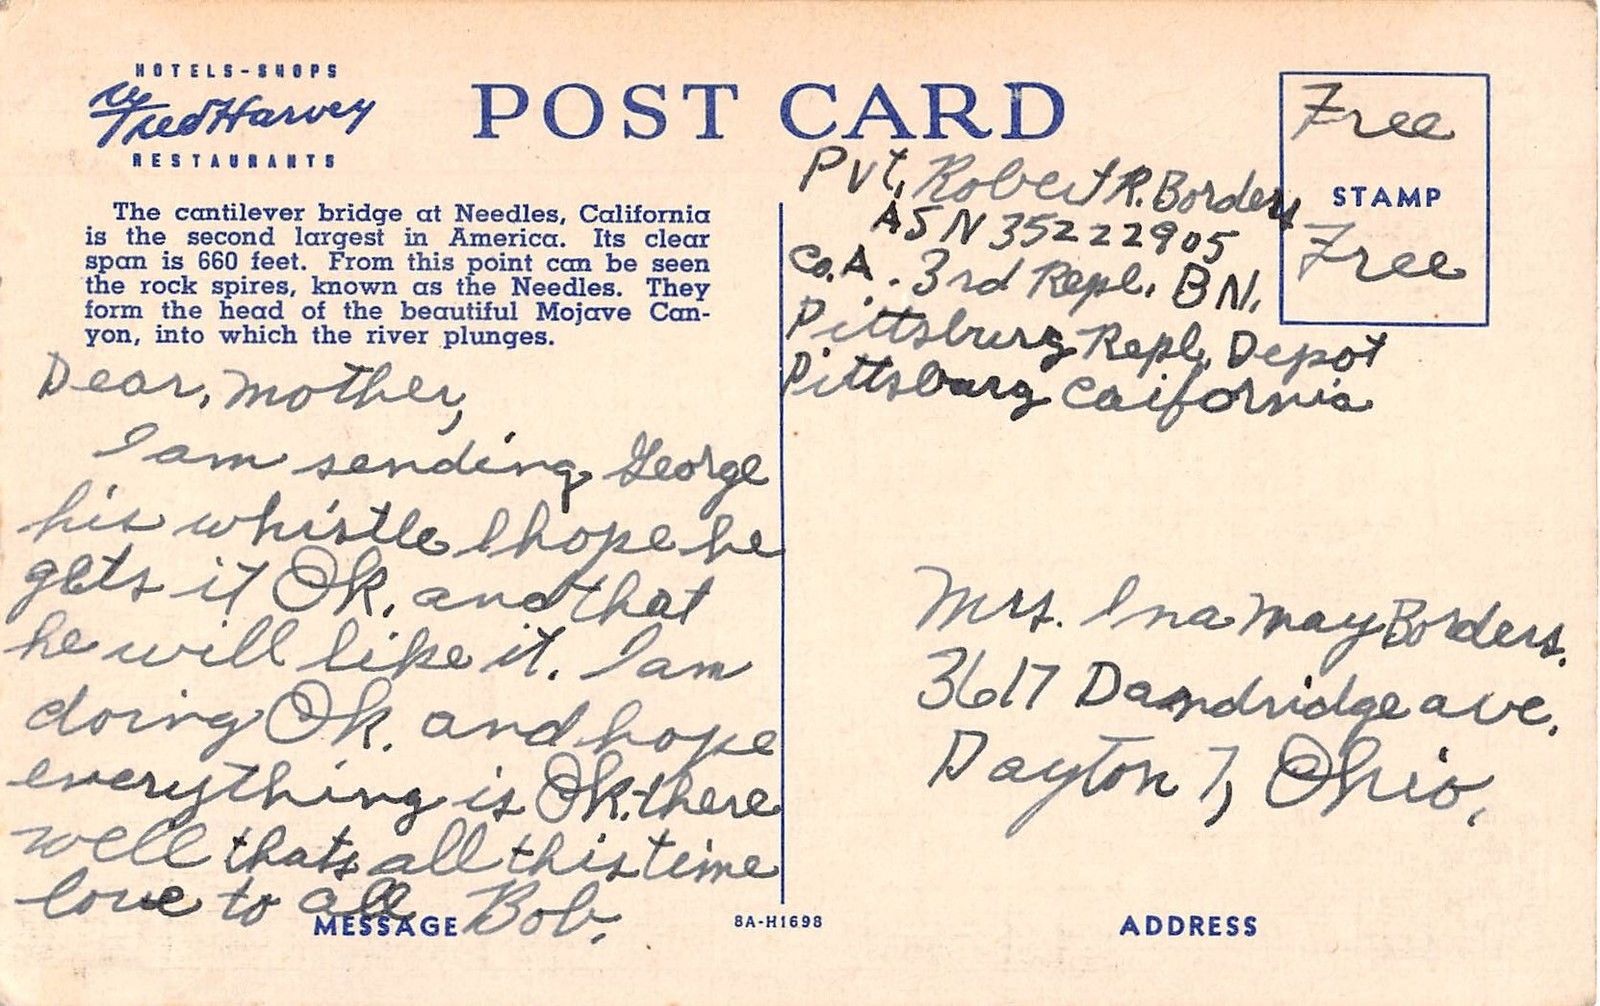 HOTELS-SHOPS
Fred Harvey
RESTAURANTS
POST CARD
The cantilever bridge at Needles, California
is the second largest in America. Its clear
span is 660 feet. From this point can be seen
the rock spires, known as the Needles. They
form the head of the beautiful Mojave Can-
yon, into which the river plunges.
Dear, Mother,
I am sending George
his whistle I hope he
gets it Ok. and that
he will like it. I am
doing Ok. and hope
everything is Ok. there
well thats all this time
love to all Bob.
MESSAGE
8A-H1698
Free
STAMP
Free
Pvt. Robert R. Borders
ASN 35222905
Co. A. 3rd Repl. BN.
Pittsburg Repl. Depot
Pittsburg Caifornia
Mrs. Ina May Borders.
3617 Dandridge ave.
Dayton 7, Ohio.
ADDRESS